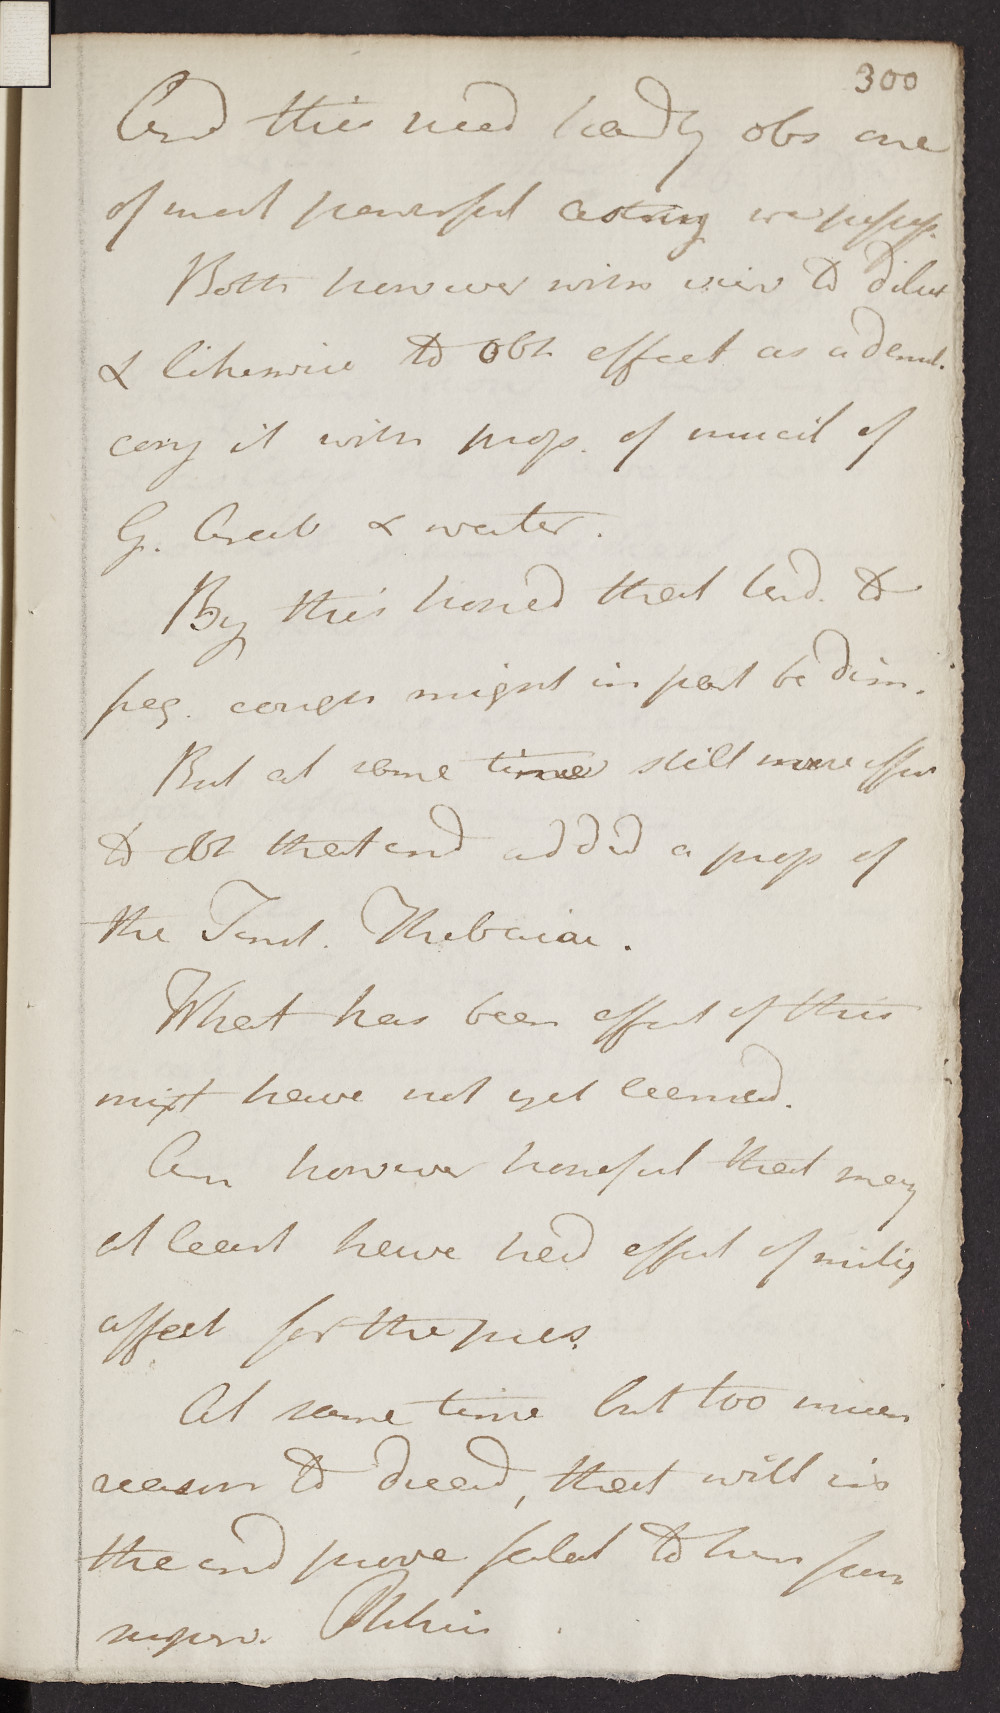 300
And this need hardly obs one
of most powerful astring we possess.
Both however with view to dilut
& likewise to obt effect as a demul.
conj it with prop. of mucil of
G. Arab & water.
By this hoped that tend. to
freq. cough might in part be dim.
But at same time still more effec
to obt that end added a prop of
the Tinct. Thebaicae.
What has been effect of this
mixt have not yet learned.
Am however hopeful that may
at least have had effect of mitig
affect for the pres.
At same time but too much
reason to dread, that will in
the end prove fatal to him from
superv. Phthisis